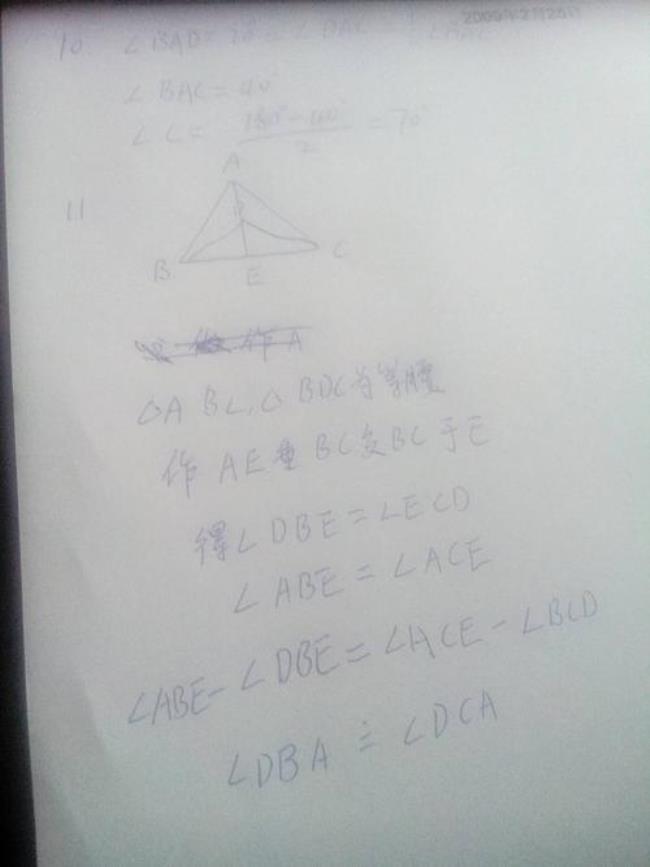 2009年2月25日
10. ∠BAD=20°=∠DAC=1/2∠BAC
∠BAC=40°
∠C=(180°-40°)/2=70°
A
11
D
B
E
C
作A
△ABC,△BDC为等腰
作AE垂BC交BC于E
得∠DBE=∠ECD
∠ABE=∠ACE
∠ABE-∠DBE=∠ACE-∠BCD
∠DBA=∠DCA